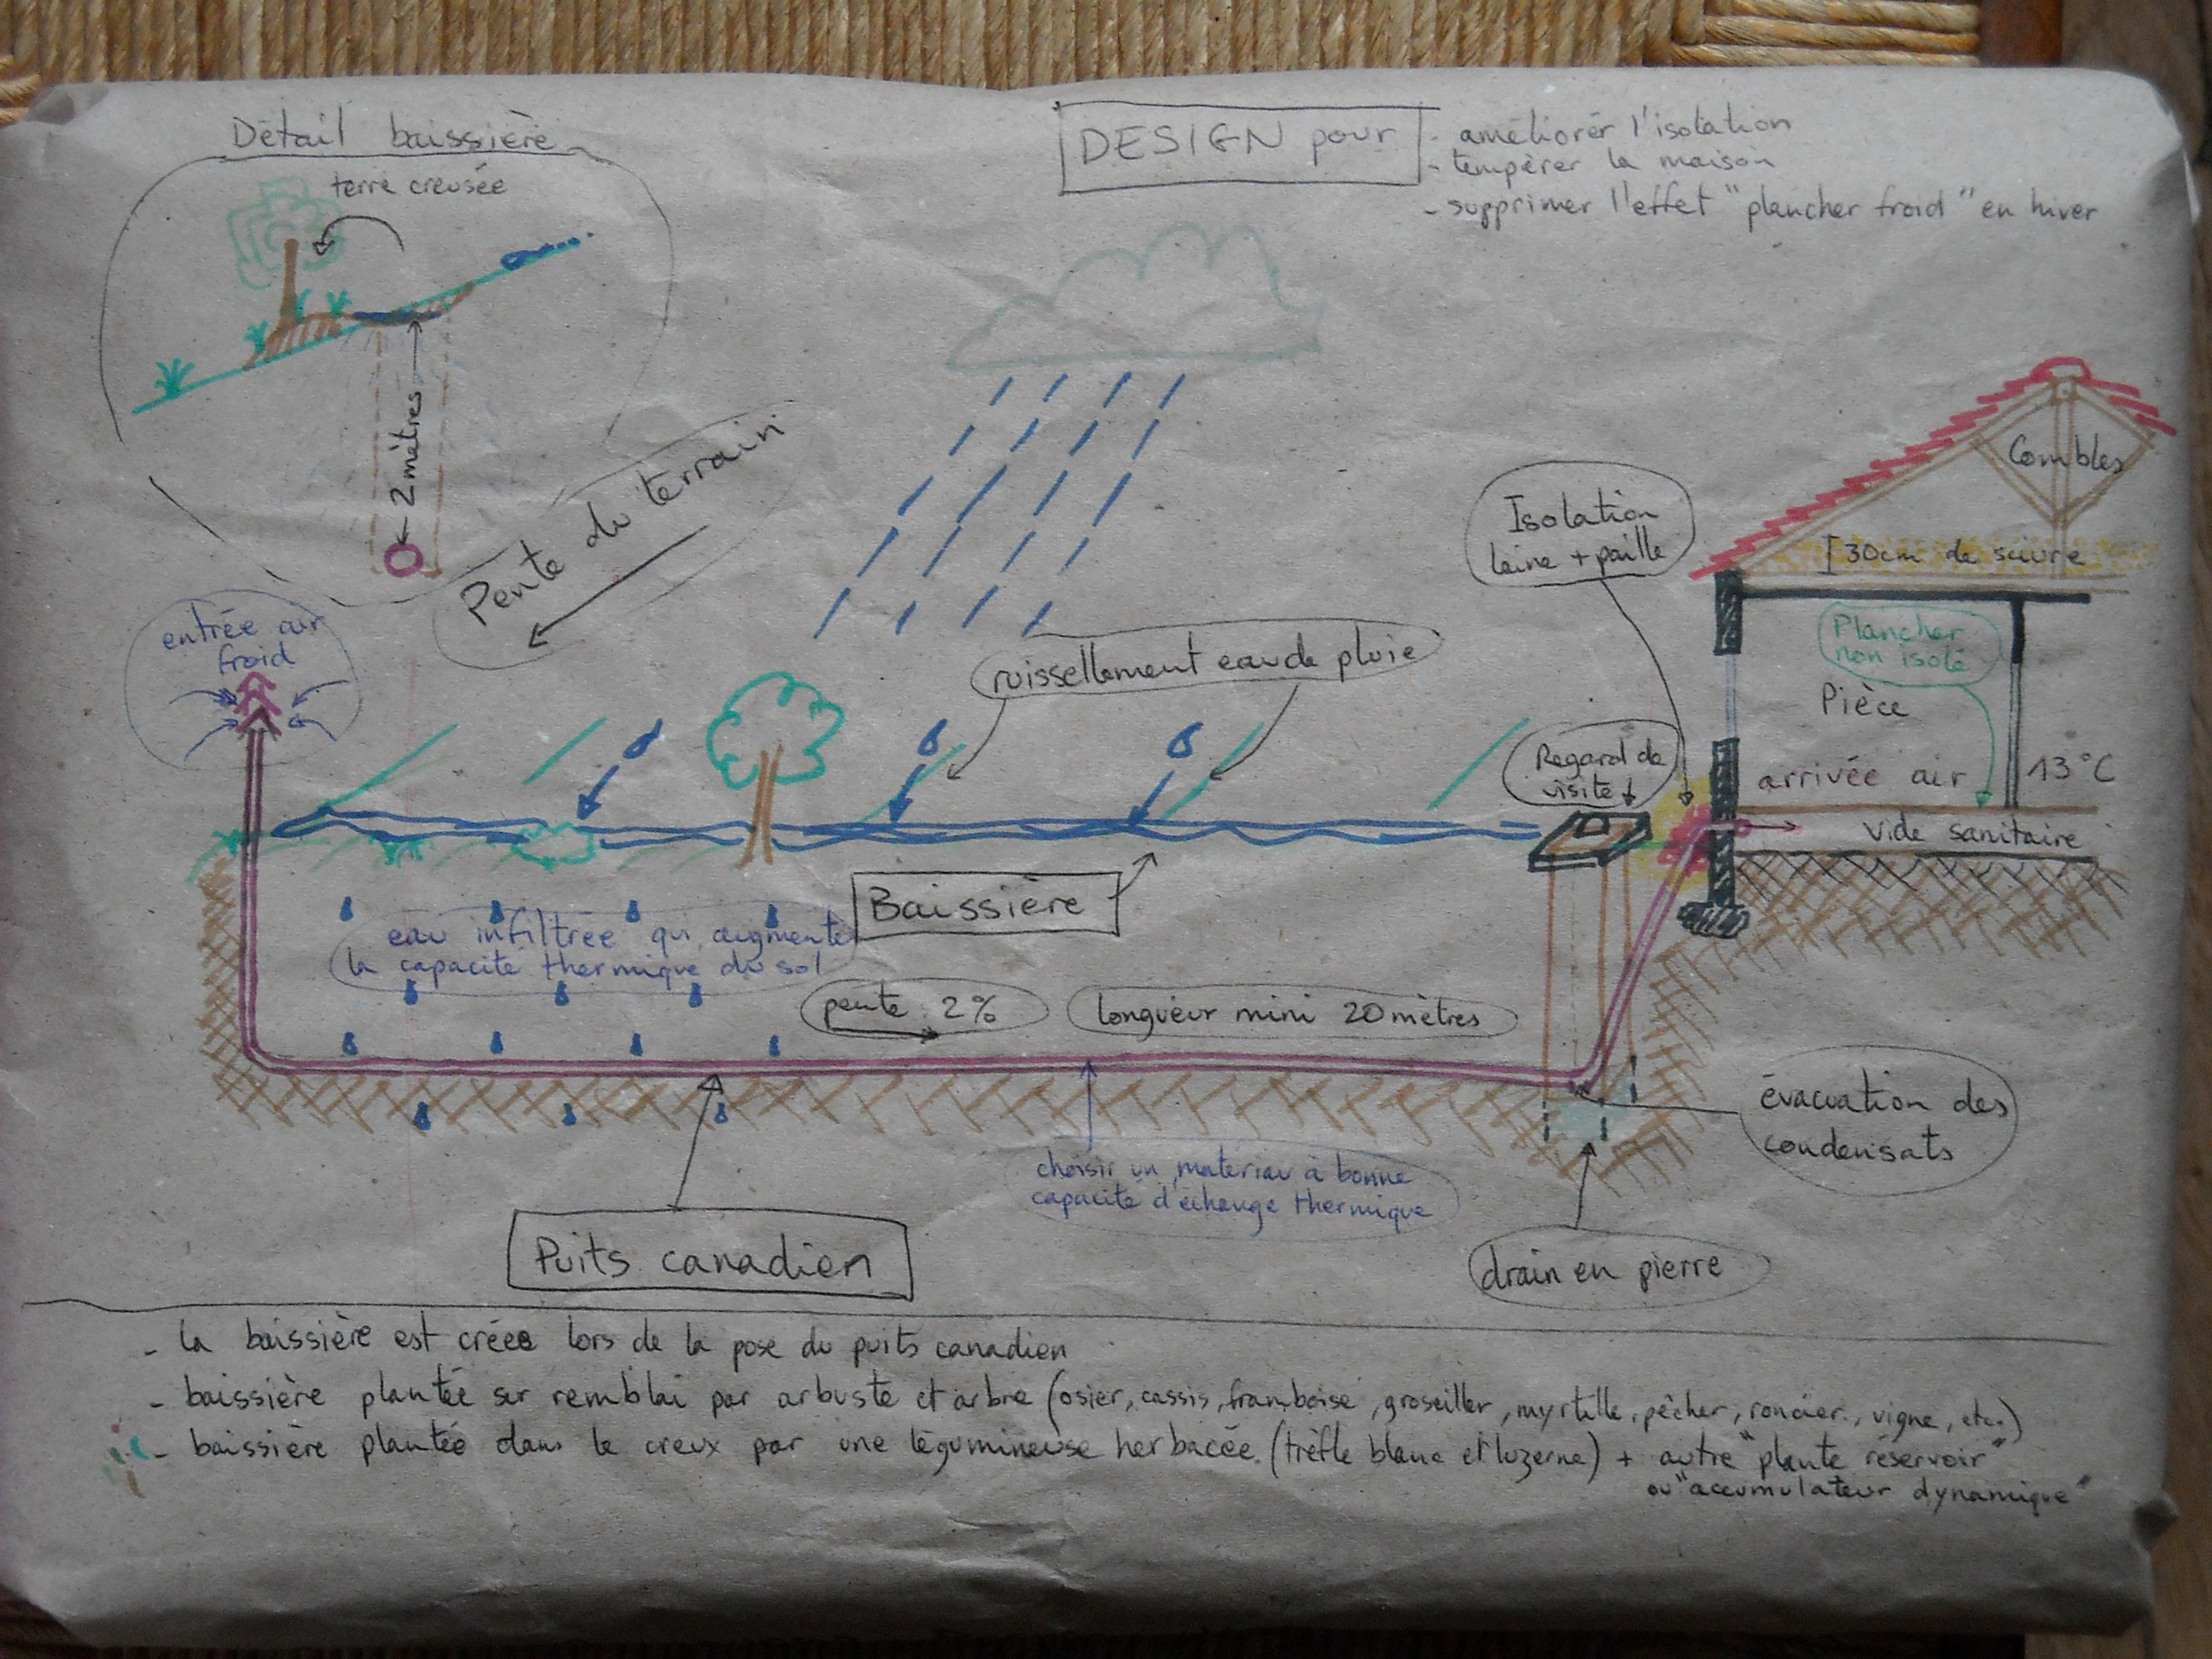 Détail baissière
terre creusée
2 mètres
DESIGN pour
- améliorer l'isolation
- tempérer la maison
- supprimer l'effet "plancher froid" en hiver
Pente du terrain
entrée air
froid
ruissellement eau de pluie
Isolation
laine + paille
Combles
30cm de
Plancher
non isolé
Pièce
Regard de
visite
arrivée air
13°C
vide sanitaire
Baissière
eau infiltrée qui augmente
la capacité thermique du sol
pente 2%
longueur mini 20 mètres
évacuation des
condensats
choisir un materiau à bonne
capacité d'échange thermique
Puits canadien
drain en pierre
- la baissière est créée lors de la pose du puits canadien
- baissière plantée sur remblai par arbuste et arbre (osier, cassis, framboise, groseiller, myrtille, pêcher, roncier, vigne, etc.)
- baissière plantée dans le creux par une légumineuse herbacée (trèfle blanc et luzerne) + autre "plante réservoir"
ou "accumulateur dynamique"